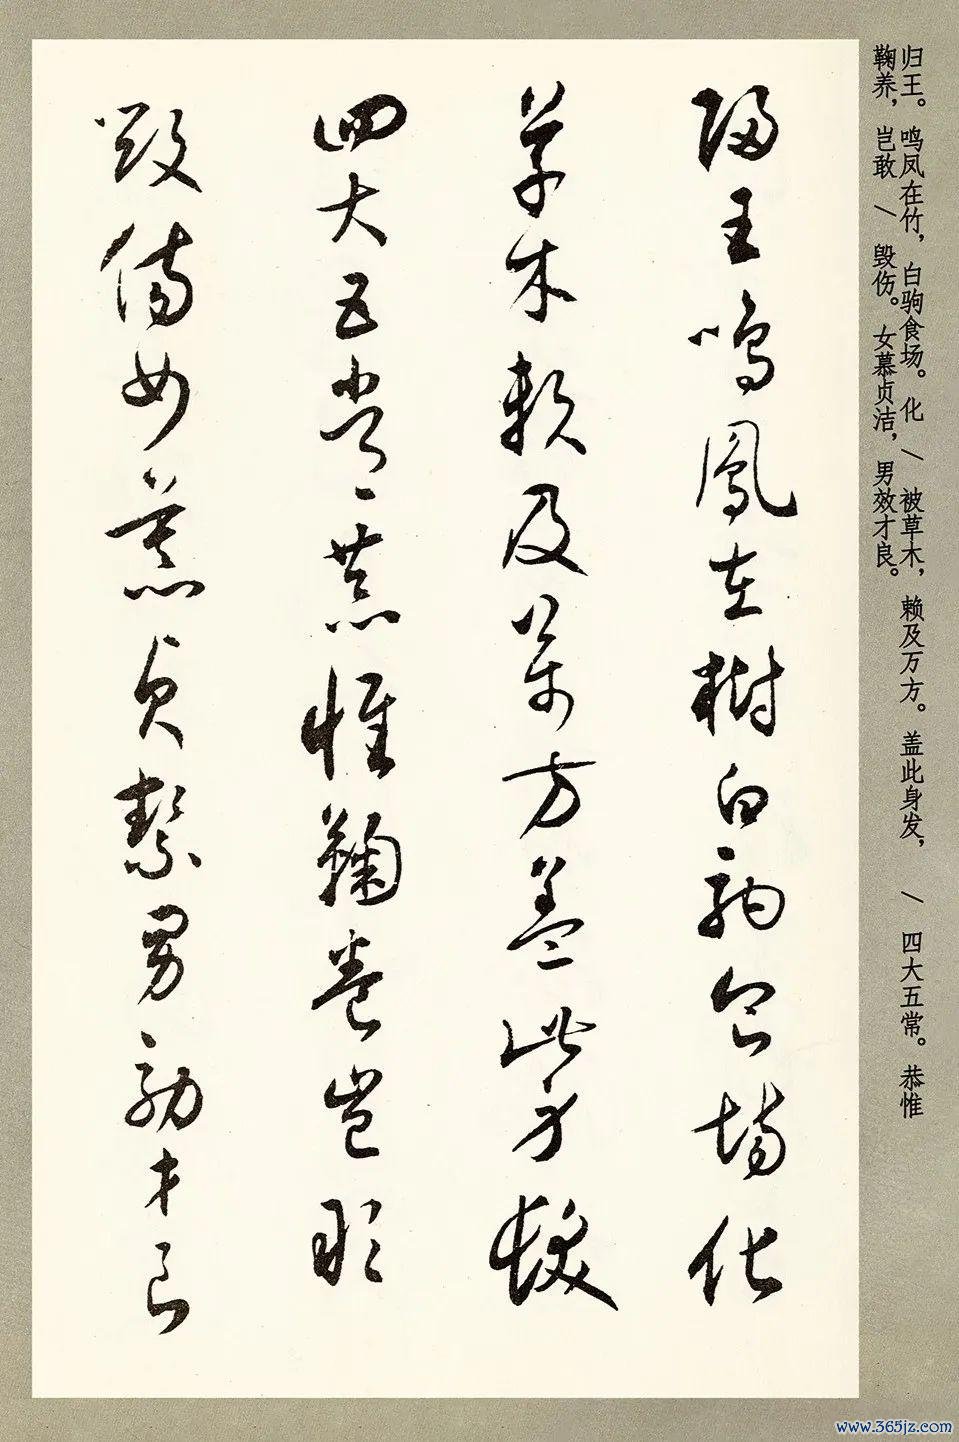 归王。鸣凤在竹，白驹食场。化 \ 被草木，赖及万方。盖此身发， \ 四大五常。恭惟
鞠养，岂敢 \ 毁伤。女慕贞洁，男效才良。
歸王鳴鳳在樹白駒食場化
草木賴及萬方蓋此身髮
四大五常恭惟鞠養豈敢
毀傷女慕貞絜男效才良
www.365jz.com